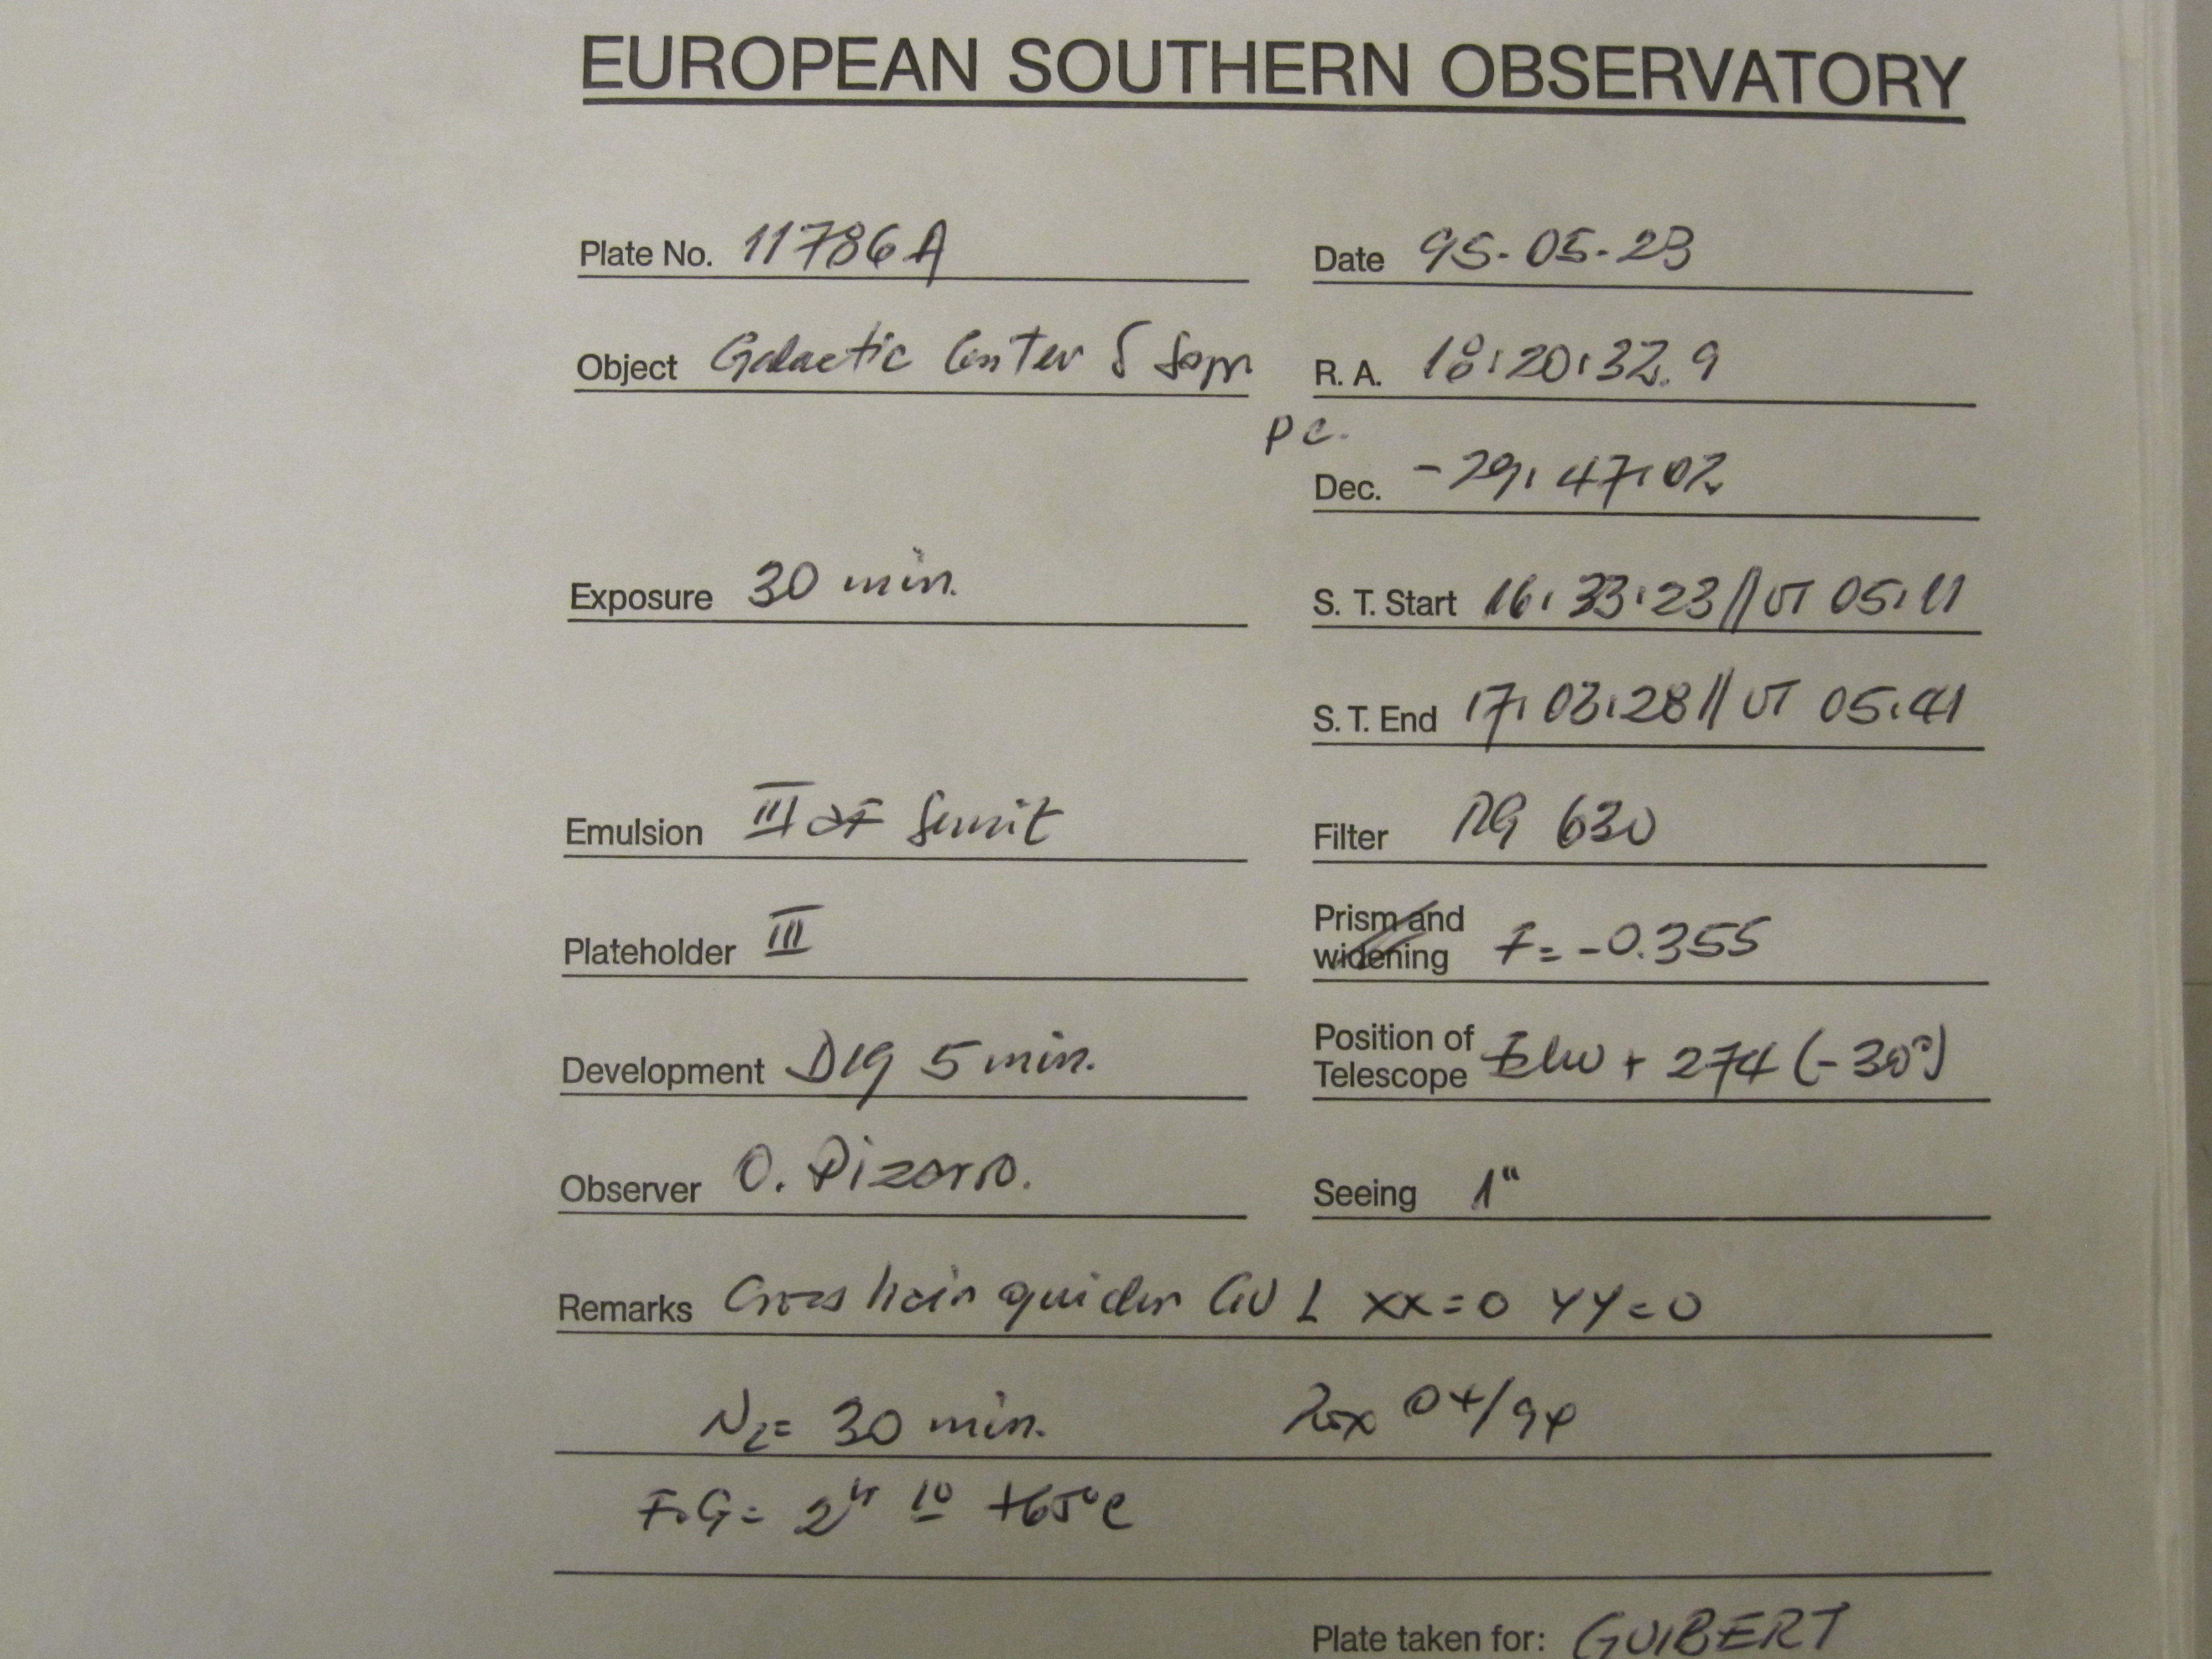 EUROPEAN SOUTHERN OBSERVATORY
Plate No. 11786A
Date 95-05-23
Object Galactic Center
R. A. 18:20:32.9
pc.
Dec. -29:47:02
Exposure 30 min.
S. T. Start 16:33:23 // UT 05:11
S. T. End 17:03:28 // UT 05:41
Emulsion III aF
Filter RG 630
Plateholder III
Prism and widening F= -0.355
Development D19 5 min.
Position of Telescope + 274 (-30°)
Observer O. Pizarro.
Seeing 1"
Remarks Cross hair guider GU 1 XX=0 YY=0
N2= 30 min.
F.G= 2h 10 +65°C
Plate taken for: GUIBERT